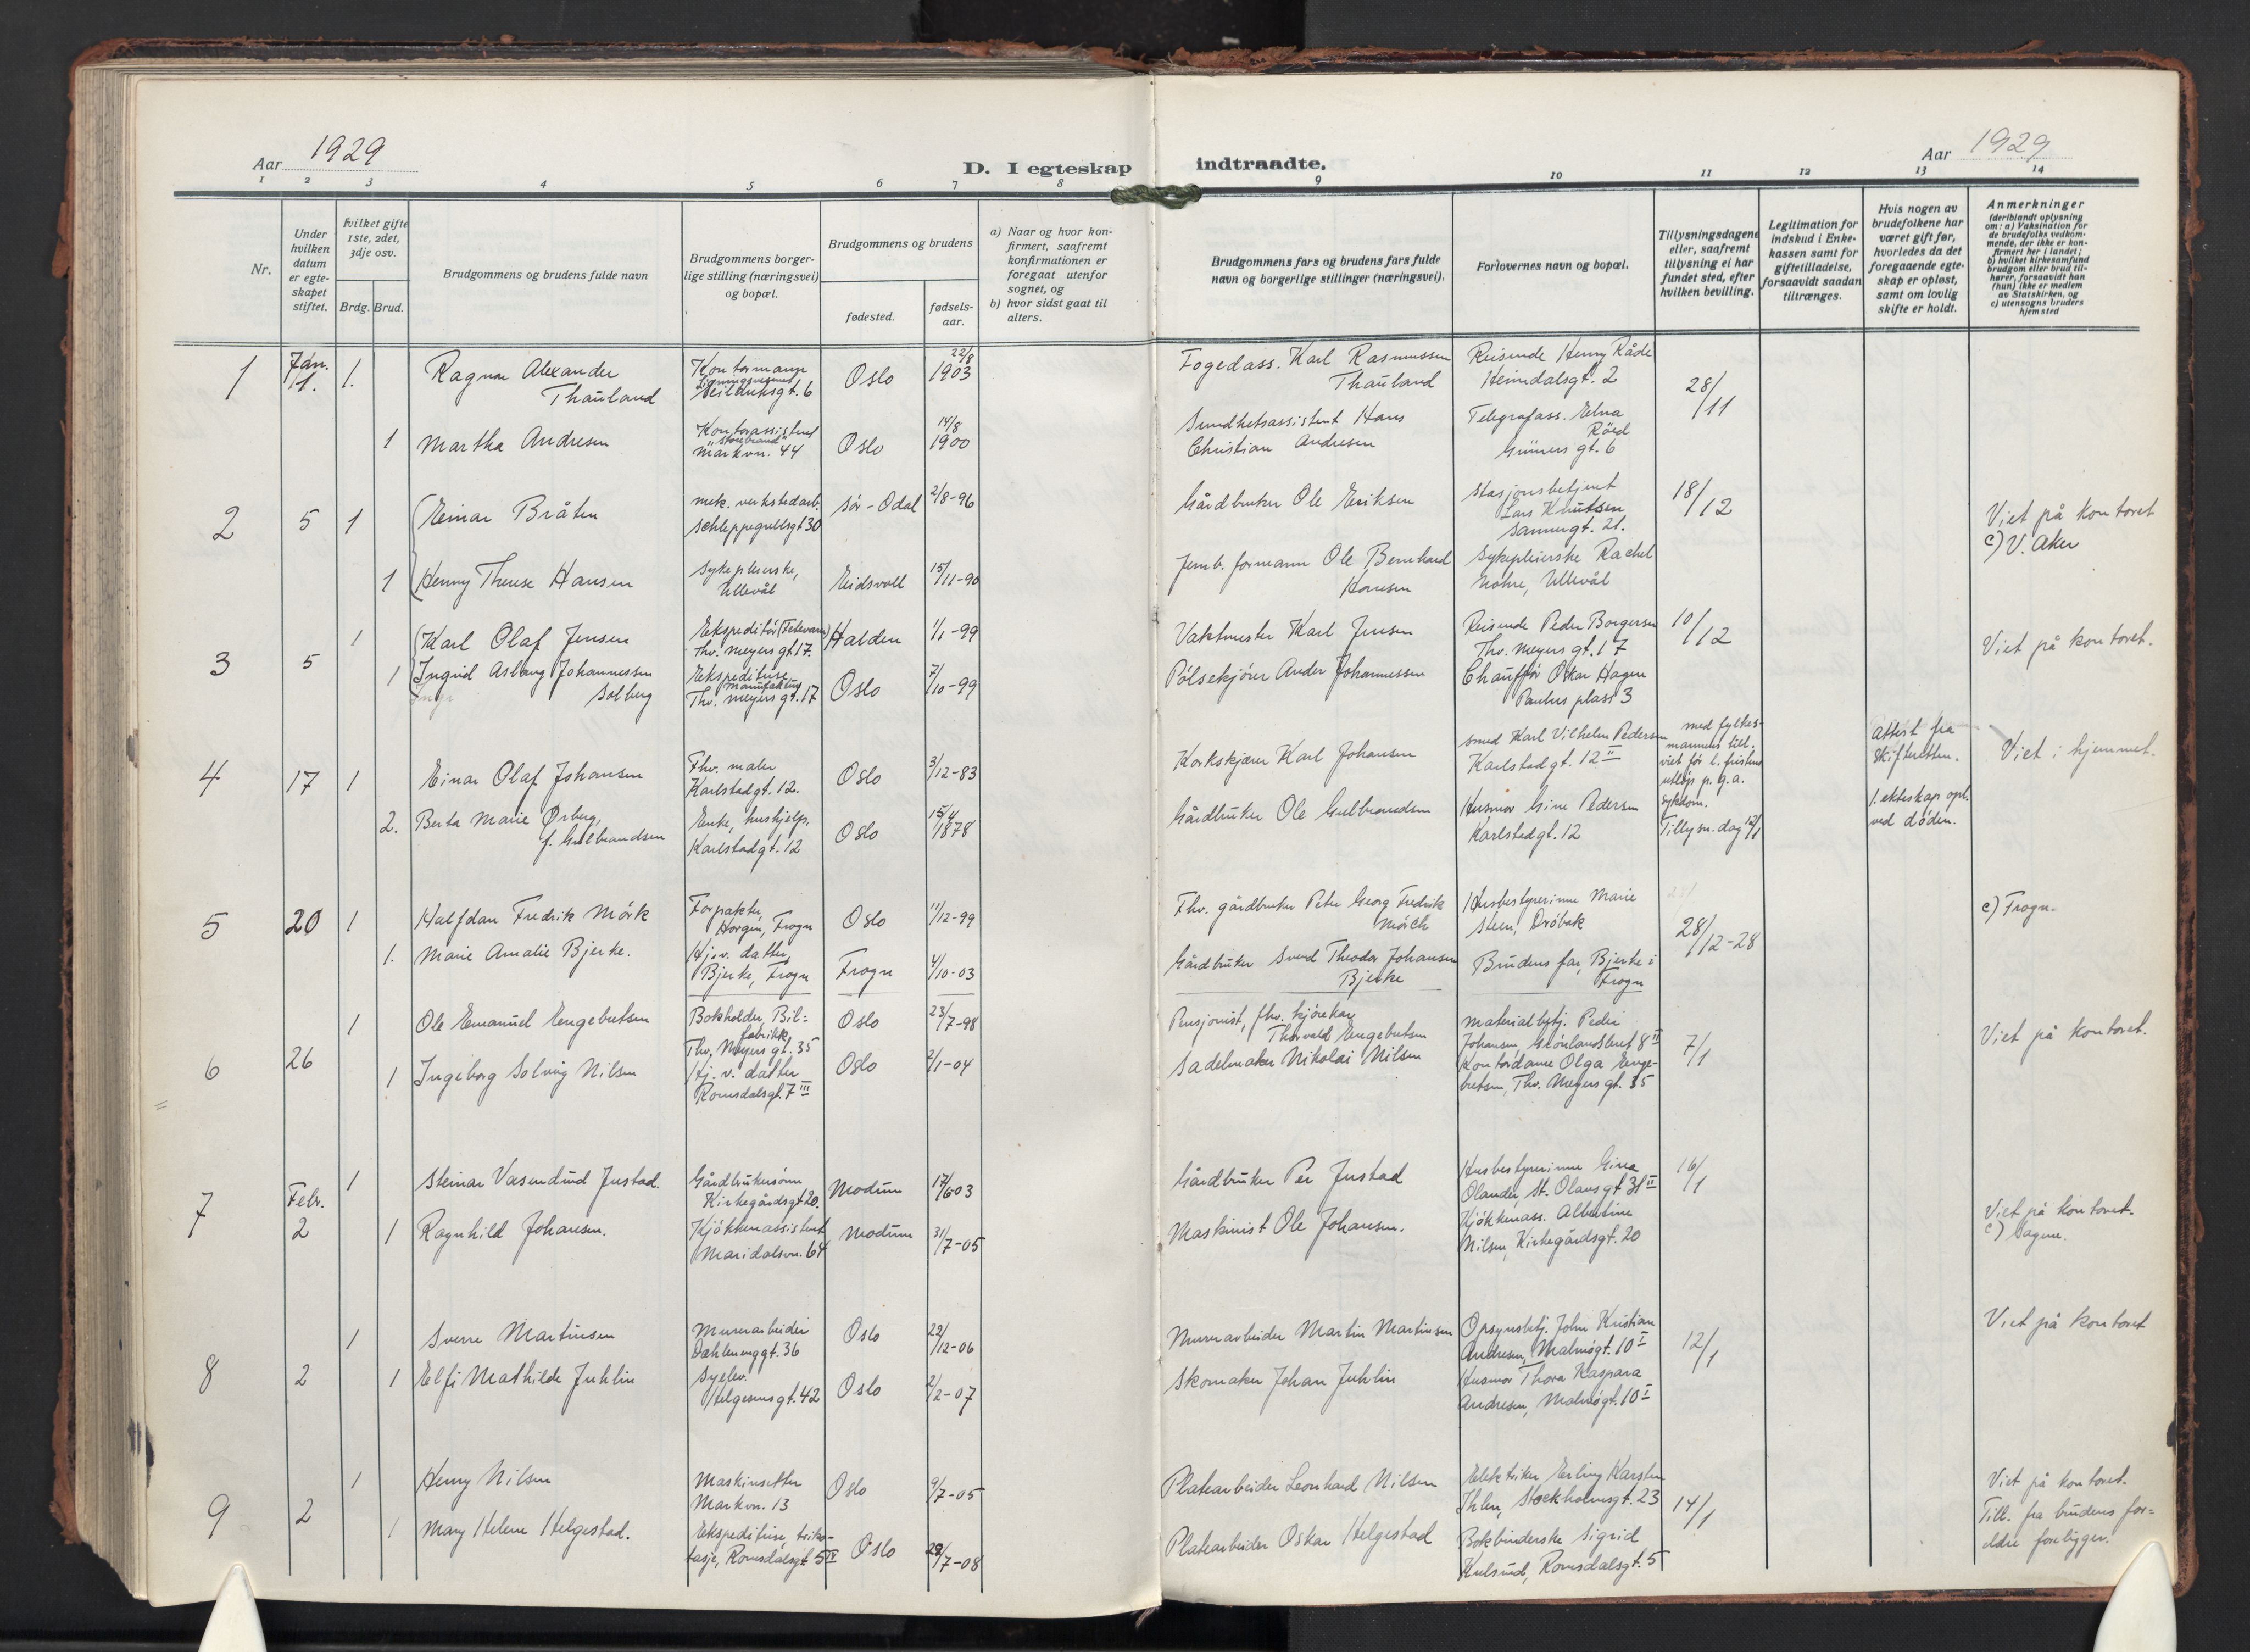 Aar 1929
D. I egteskap
indtraadte.
Aar 1929
1 2 3 4 5 6 7 8 9 10 11 12 13 14
Nr.
Under
hvilken
datum
er egte-
skapet
stiftet.
Hvilket gifte
1ste, 2det,
3dje osv.
Brdg. Brud.
Brudgommens og brudens fulde navn
Brudgommens borger-
lige stilling (næringsvei)
og bopæl.
Brudgommens og brudens
fødested.
fødsels-
aar.
a) Naar og hvor kon-
firmert, saafremt
konfirmationen er
foregaat utenfor
sognet, og
b) hvor sidst gaat til
alters.
Brudgommens fars og brudens fars fulde
navn og borgerlige stillinger (næringsvei).
Forlovernes navn og bopæl.
Tillysningsdagene
eller, saafremt
tillysning ei har
fundet sted, efter
hvilken bevilling.
Legitimation for
indskud i Enke-
kassen samt for
giftetilladelse,
forsaavidt saadan
tiltrænges.
Hvis nogen av
brudefolkene har
været gift før,
hvorledes da det
foregaaende egte-
skap er opløst,
samt om lovlig
skifte er holdt.
Anmerkninger
(deriblandt oplysning
om: a) Vaksination for
de brudefolks vedkom-
mende, der ikke er kon-
firmert her i landet;
b) hvilket kirkesamfund
brudgom eller brud til-
hører, forsaavidt han
(hun) ikke er medlem
av Statskirken, og
c) utensogns bruders
hjemsted
1
Jan.
1.
1.
Ragnar Alexander
Thauland
Kontormann
Seilduksgt. 6
Oslo
22/8
1903
Fogedass. Karl Rasmussen
Thauland
Reisende Henry Råde
Heimdalsgt. 2
28/11
1
Martha Andresen
Kontorassistent
"Storebrand"
Markvn. 44
Oslo
14/8
1900
Sundhetsassistent Hans
Christian Andresen
Telegrafass. Elna
Röed
Grüners gt. 6
2
5
1
Einar Bråten
mek. verkstedarb.
Schleppegrellsgt 30
Sør-Odal
2/8-96
Gårdbruker Ole Eriksen
Stasjonsbetjent
Lars Knutsen
Sannergt. 21.
18/12
Viet på kontoret
c) V. Aker
1
Henny Therese Hansen
Sykepleierske,
Ullevål
Eidsvoll
15/11-90
Jernb. formann Ole Bernhard
Hansen
Sykepleierske Rachel
Mohre, Ullevål
3
5
1
Karl Olaf Jensen
Ekspeditør (Fetevarer)
Thv. Meyers gt 17.
Halden
1/1-99
Vaktmester Karl Jensen
Reisende Peder Borgersen
Thv. Meyers gt. 17
10/12
Viet på kontoret.
1
Ingrid Asbørg Johannessen
Solberg
Ekspeditrise
manufaktur
Thv. Meyers gt. 17
Oslo
7/10-99
Pølsekjører Ander Johannessen
Chauffør Oskar Hagen
Paulus plass 3
4
17
1
Einar Olaf Johansen
Fhv. maler
Karlstadgt. 12.
Oslo
3/12-83
Korkskjærer Karl Johansen
Smed Karl Vilhelm Pedersen
Karlstadgt. 12 II
med fylkes-
mannens till.
viet før l. fristens
utløp p. g. a.
sykdom.
Tillysn. dag 12/1
Attest fra
Skifteretten.
1. ekteskap opl.
ved döden.
Viet i hjemmet.
2.
Berta Marie Ørberg,
f. Gulbrandsen
Enke, hushjelp.
Karlstadgt. 12
Oslo
15/4
1878
Gårdbruker Ole Gulbrandsen
Husmor Gina Pedersen
Karlstadgt. 12
5
20
1
Halfdan Fredrik Mörk
Forpakter,
Horgen, Frogn
Oslo
11/12-99
Fhv. gårdbruker Peter Georg Fredrik
Mörch
Husbestyrerinne Marie
Steen, Dröbak
28/12-28
c) Frogn.
1.
Marie Amalie Bjerke.
Hj.v. datter,
Bjerke, Frogn
Frogn
4/10-03
Gårdbruker Svend Theodor Johansen
Bjerke
Brudens far, Bjerke i
Frogn
6
26
1
Ole Emanuel Engebretsen
Bokholder, Bil-
fabrikk
Thv. Meyers gt. 35
Oslo
23/7-98
Pensjonist, fhv. kjørekar
Thorvald Engebretsen
Materialbetj. Peder
Johansen, Grönlandsleret 8 II
7/1
Viet på kontoret.
1
Ingeborg Solveig Nilsen
Hj. v. datter
Romsdalsgt. 7 III
Oslo
2/1-04
Sadelmaker Nikolai Nilsen
Kontordame Olga Enge-
bretsen, Thv. Meyers gt. 35
7
Febr.
2
1
Steinar Vasendrud Justad.
Gårdbrukersönn
Kirkegårdsgt 20.
Modum
17/6 03
Gårdbruker Per Justad
Husbestyrerinne Gina
Olander, St. Olavsgt 31 II
16/1
Viet på kontoret.
c) Sagene.
1
Ragnhild Johansen.
Kjökkenassistent
Maridalsvn. 64
Modum
31/7-05
Maskinist Ole Johansen.
Kjökkenass. Albertine
Nilsen, Kirkegårdsgt. 20
8
2
1
Sverre Martinsen
Murerarbeider
Dæhlenenggt. 36
Oslo
22/12-06
Murerarbeider Martin Martinsen
Opsynsbetj. John Kristian
Andresen, Malmögt. 10 I
12/1
Viet på kontoret
1
Elfi Mathilde Juhlin
Syelev.
Helgesensgt. 42
Oslo
2/2-07
Skomaker Johan Juhlin
Husmor Thora Kaspara
Andresen, Malmögt. 10 I
9
2
1
Henry Nilsen
Maskinsetter
Markvn. 13
Oslo
9/7-05
Platearbeider Leonhard Nilsen
Elektriker Erling Karsten
Ihlen, Stockholmsgt. 23
14/1
Viet på kontoret.
Till. fra brudens for-
eldre foreligger.
1
Mary Helene Helgestad.
Ekspeditrise, triko-
tasje, Romsdalsgt 5 IV
Oslo
29/7-08
Platearbeider Oskar Helgestad
Bokbinderske Sigrid
Kulsrud, Romsdalsgt. 5